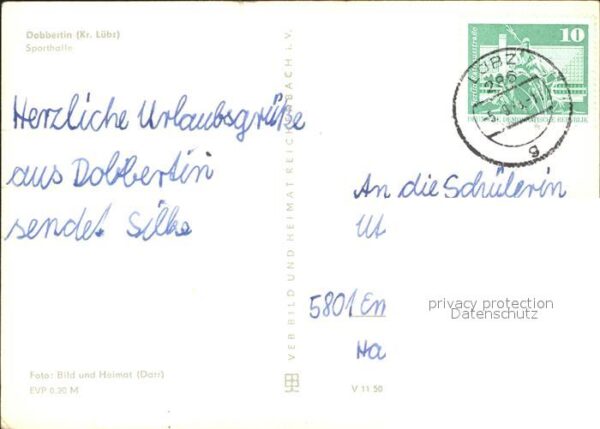 Dobbertin (Kr. Lübz)
Sporthalle
Herzliche Urlaubsgrüße
aus Dobbertin
sendet Silke
Foto: Bild und Heimat (Darr)
EVP 0,20 M
VEB BILD UND HEIMAT REICHENBACH i. V.
V 11 50
10
DEUTSCHE DEMOKRATISCHE REPUBLIK
LÜBZ
286
g
An die Schülerin
Ut
5801 En
Ha
privacy protection
Datenschutz